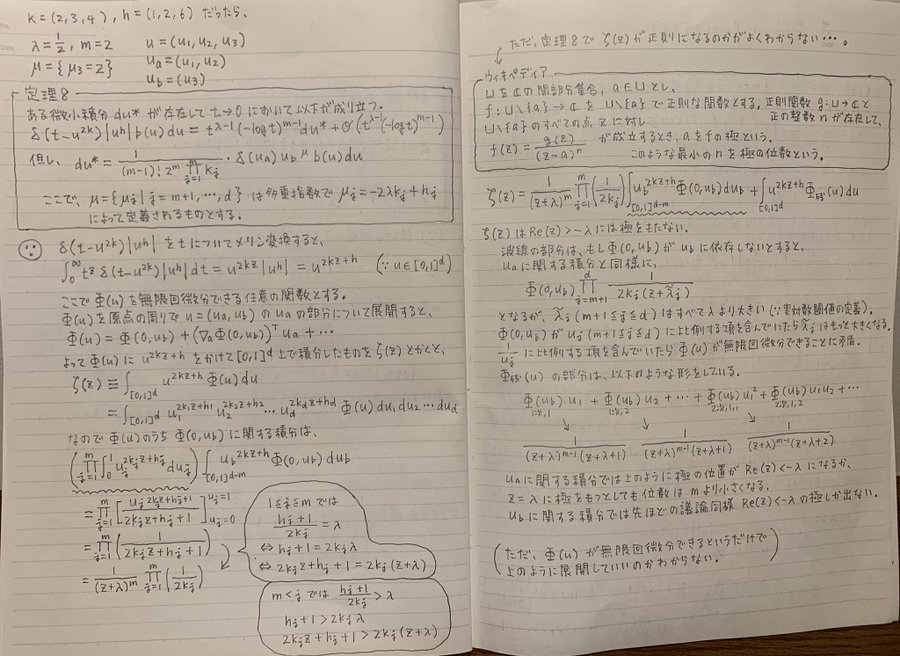 k=(2,3,4), h=(1,2,6) だったら、
λ=1/2, m=2　u=(u₁,u₂,u₃)
μ={μ₃=2}　u_a=(u₁,u₂)
u_b=(u₃)
定理8
ある微小積分 du* が存在して t→0 において以下が成り立つ。
δ(t-u^{2k})|u^h|b(u)du = t^{λ-1}(-log t)^{m-1}du* + o(t^{λ-1}(-log t)^{m-1})
但し、du* = 1/((m-1)! 2^m ∏_{j=1}^{m} k_j)・δ(u_a) u_b^μ b(u)du
ここで、μ={μ_j | j=m+1,…,d} は多重指数で μ_j=-2λk_j+h_j
によって定義されるものとする。
δ(t-u^{2k})|u^h| を t についてメリン変換すると、
∫₀^∞ t^z δ(t-u^{2k})|u^h|dt = u^{2kz}|u^h| = u^{2kz+h} (∵ u∈[0,1]^d)
ここで Φ(u) を無限回微分できる任意の関数とする。
Φ(u) を原点の周りで u=(u_a,u_b) の u_a の部分について展開すると、
Φ(u) = Φ(0,u_b) + (∇_aΦ(0,u_b))^T u_a + …
よって Φ(u) に u^{2kz+h} をかけて [0,1]^d 上で積分したものを ζ(z) とかくと、
ζ(z) ≡ ∫_{[0,1]^d} u^{2kz+h} Φ(u)du
= ∫_{[0,1]^d} u₁^{2k₁z+h₁} u₂^{2k₂z+h₂} … u_d^{2k_dz+h_d} Φ(u) du₁du₂…du_d
なので Φ(u) のうち Φ(0,u_b) に関する積分は、
(∏_{j=1}^{m} ∫₀¹ u_j^{2k_jz+h_j} du_j) ∫_{[0,1]^{d-m}} u_b^{2kz+h} Φ(0,u_b) du_b
= ∏_{j=1}^{m} [u_j^{2k_jz+h_j+1}/(2k_jz+h_j+1)]_{u_j=0}^{u_j=1}
= ∏_{j=1}^{m} (1/(2k_jz+h_j+1))
= 1/(z+λ)^m ∏_{j=1}^{m} (1/(2k_j))
1≦j≦m では
(h_j+1)/(2k_j) = λ
⇔ h_j+1=2k_jλ
⇔ 2k_jz+h_j+1=2k_j(z+λ)
m<j では (h_j+1)/(2k_j) > λ
h_j+1>2k_jλ
2k_jz+h_j+1>2k_j(z+λ)
ただ、定理8で ζ(z) が正則になるのかがよくわからない…。
ウィキペディア
U を ℂ の開部分集合、a∈U とし、
f:U\{a}→ℂ を U\{a} で正則な関数とする。正則関数 g:U→ℂ と
正の整数 n が存在して、
U\{a} のすべての点 z に対し
f(z) = g(z)/(z-a)^n が成立するとき、a を f の極という。
このような最小の n を極の位数という。
ζ(z) = 1/(z+λ)^m ∏_{j=1}^{m} (1/(2k_j)) ∫_{[0,1]^{d-m}} u_b^{2kz+h} Φ(0,u_b)du_b + ∫_{[0,1]^d} u^{2kz+h} Φ_残(u)du
ζ(z) は Re(z)>-λ には極をもたない。
波線の部分は、もし Φ(0,u_b) が u_b に依存しないとすると、
u_a に関する積分と同様に、
Φ(0,u_b) ∏_{j=m+1}^{d} 1/(2k_j(z+λ̃_j))
となるが、λ̃_j (m+1≦j≦d) はすべて λ より大きい (∵ 実対数閾値の定義)。
Φ(0,u_b) が u_j (m+1≦j≦d) に比例する項を含んでいたら λ̃_j はもっと大きくなる。
1/u_j に比例する項を含んでいたら Φ(u) が無限回微分できることに矛盾。
Φ_残(u) の部分は、以下のような形をしている。
Φ(u_b)_{1次,1} u₁ + Φ(u_b)_{1次,2} u₂ + … + Φ(u_b)_{2次,1,1} u₁² + Φ(u_b)_{2次,1,2} u₁u₂ + …
1/((z+λ)^{m-1}(z+λ+1))　1/((z+λ)^{m-1}(z+λ+1))　1/((z+λ)^{m-1}(z+λ+2))
u_a に関する積分では上のように極の位置が Re(z)<-λ になるか、
z=λ に極をもつとしても位数は m より小さくなる。
u_b に関する積分では先ほどの議論同様 Re(z)<-λ の極しか出ない。
(ただ、Φ(u) が無限回微分できるというだけで
上のように展開していいのかわからない。)